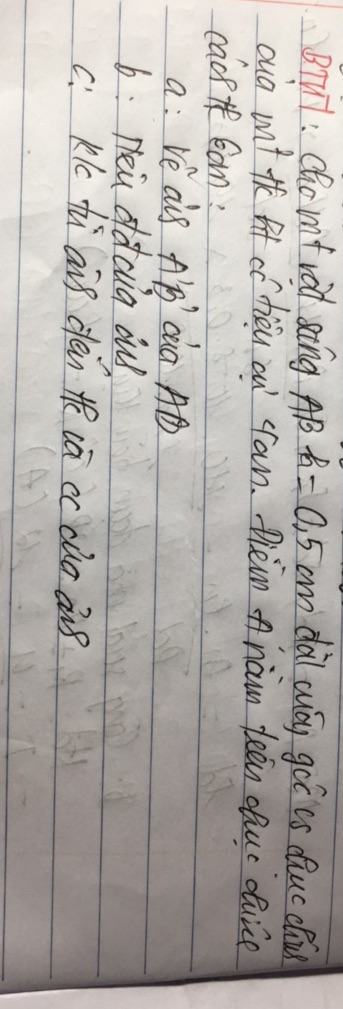 BTVN: Cho mt vật sáng AB h = 0,5 cm đặt vuông góc vs trục chính
của mt tk ht có tiêu cự 4cm. Điểm A nằm trên trục chính
cách tk 6cm:
a: Vẽ ảnh A'B' của AB
b: Nêu đđ của ảnh
c: k/c từ ảnh đến tk và cc của ảnh